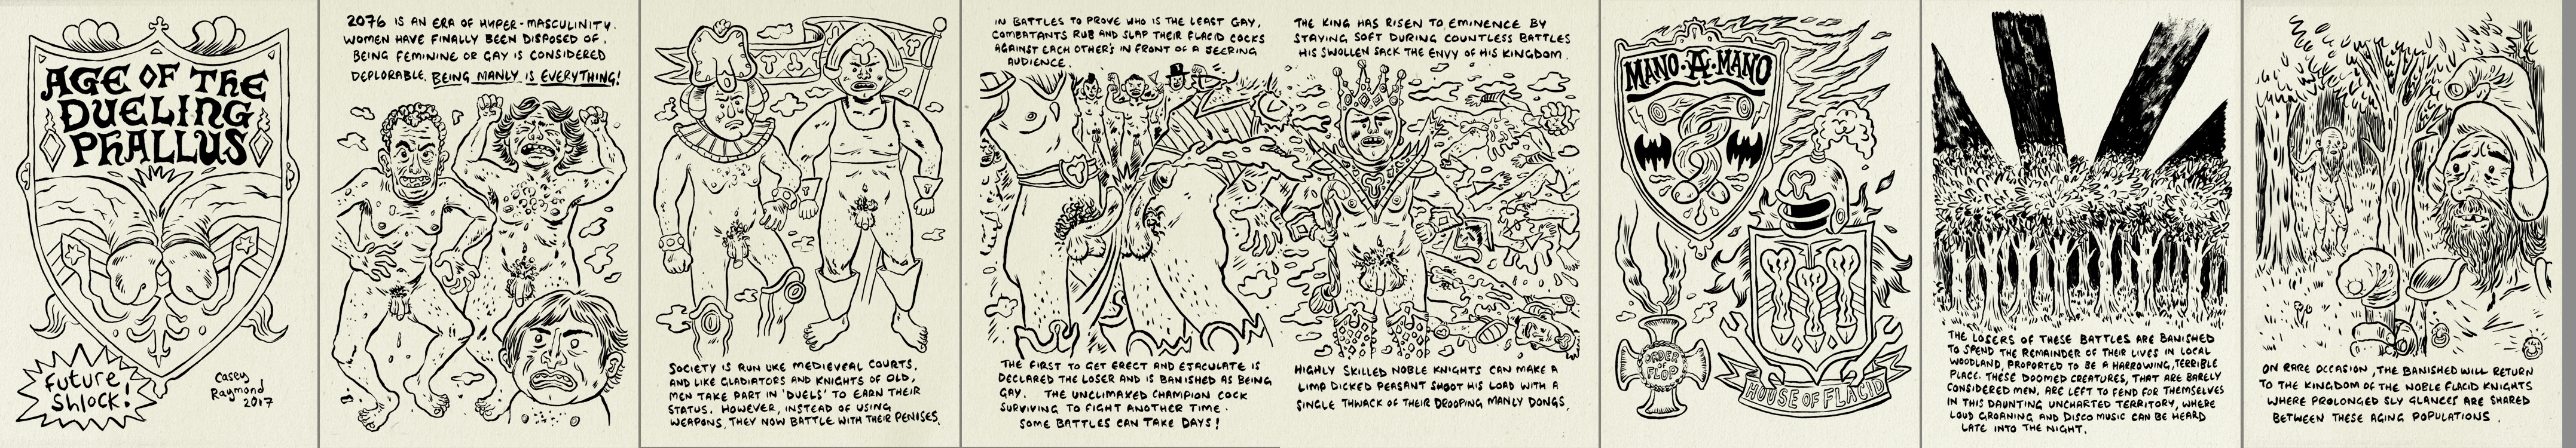 AGE OF THE
DUELING
PHALLUS
future
Shlock!
Casey
Raymond
2017
2076 IS AN ERA OF HYPER-MASCULINITY.
WOMEN HAVE FINALLY BEEN DISPOSED OF.
BEING FEMININE OR GAY IS CONSIDERED
DEPLORABLE. BEING MANLY IS EVERYTHING!
SOCIETY IS RUN LIKE MEDIEVEAL COURTS,
AND LIKE GLADIATORS AND KNIGHTS OF OLD,
MEN TAKE PART IN 'DUELS' TO EARN THEIR
STATUS. HOWEVER, INSTEAD OF USING
WEAPONS, THEY NOW BATTLE WITH THEIR PENISES.
IN BATTLES TO PROVE WHO IS THE LEAST GAY,
COMBATANTS RUB AND SLAP THEIR FLACID COCKS
AGAINST EACH OTHER'S IN FRONT OF A JEERING
AUDIENCE.
THE FIRST TO GET ERECT AND EJACULATE IS
DECLARED THE LOSER AND IS BANISHED AS BEING
GAY. THE UNCLIMAXED CHAMPION COCK
SURVIVING TO FIGHT ANOTHER TIME.
SOME BATTLES CAN TAKE DAYS!
THE KING HAS RISEN TO EMINENCE BY
STAYING SOFT DURING COUNTLESS BATTLES
HIS SWOLLEN SACK THE ENVY OF HIS KINGDOM.
HIGHLY SKILLED NOBLE KNIGHTS CAN MAKE A
LIMP DICKED PEASANT SHOOT HIS LOAD WITH A
SINGLE THWACK OF THEIR DROOPING MANLY DONGS.
MANO·A·MANO
ORDER
OF
FLOP
HOUSE OF FLACID
THE LOSERS OF THESE BATTLES ARE BANISHED
TO SPEND THE REMAINDER OF THEIR LIVES IN LOCAL
WOODLAND, PROPORTED TO BE A HARROWING, TERRIBLE
PLACE. THESE DOOMED CREATURES, THAT ARE BARELY
CONSIDERED MEN, ARE LEFT TO FEND FOR THEMSELVES
IN THIS DAUNTING UNCHARTED TERRITORY, WHERE
LOUD GROANING AND DISCO MUSIC CAN BE HEARD
LATE INTO THE NIGHT.
ON RARE OCCASION, THE BANISHED WILL RETURN
TO THE KINGDOM OF THE NOBLE FLACID KNIGHTS
WHERE PROLONGED SLY GLANCES ARE SHARED
BETWEEN THESE AGING POPULATIONS.